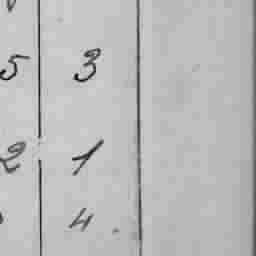 5 3
2 1
4.